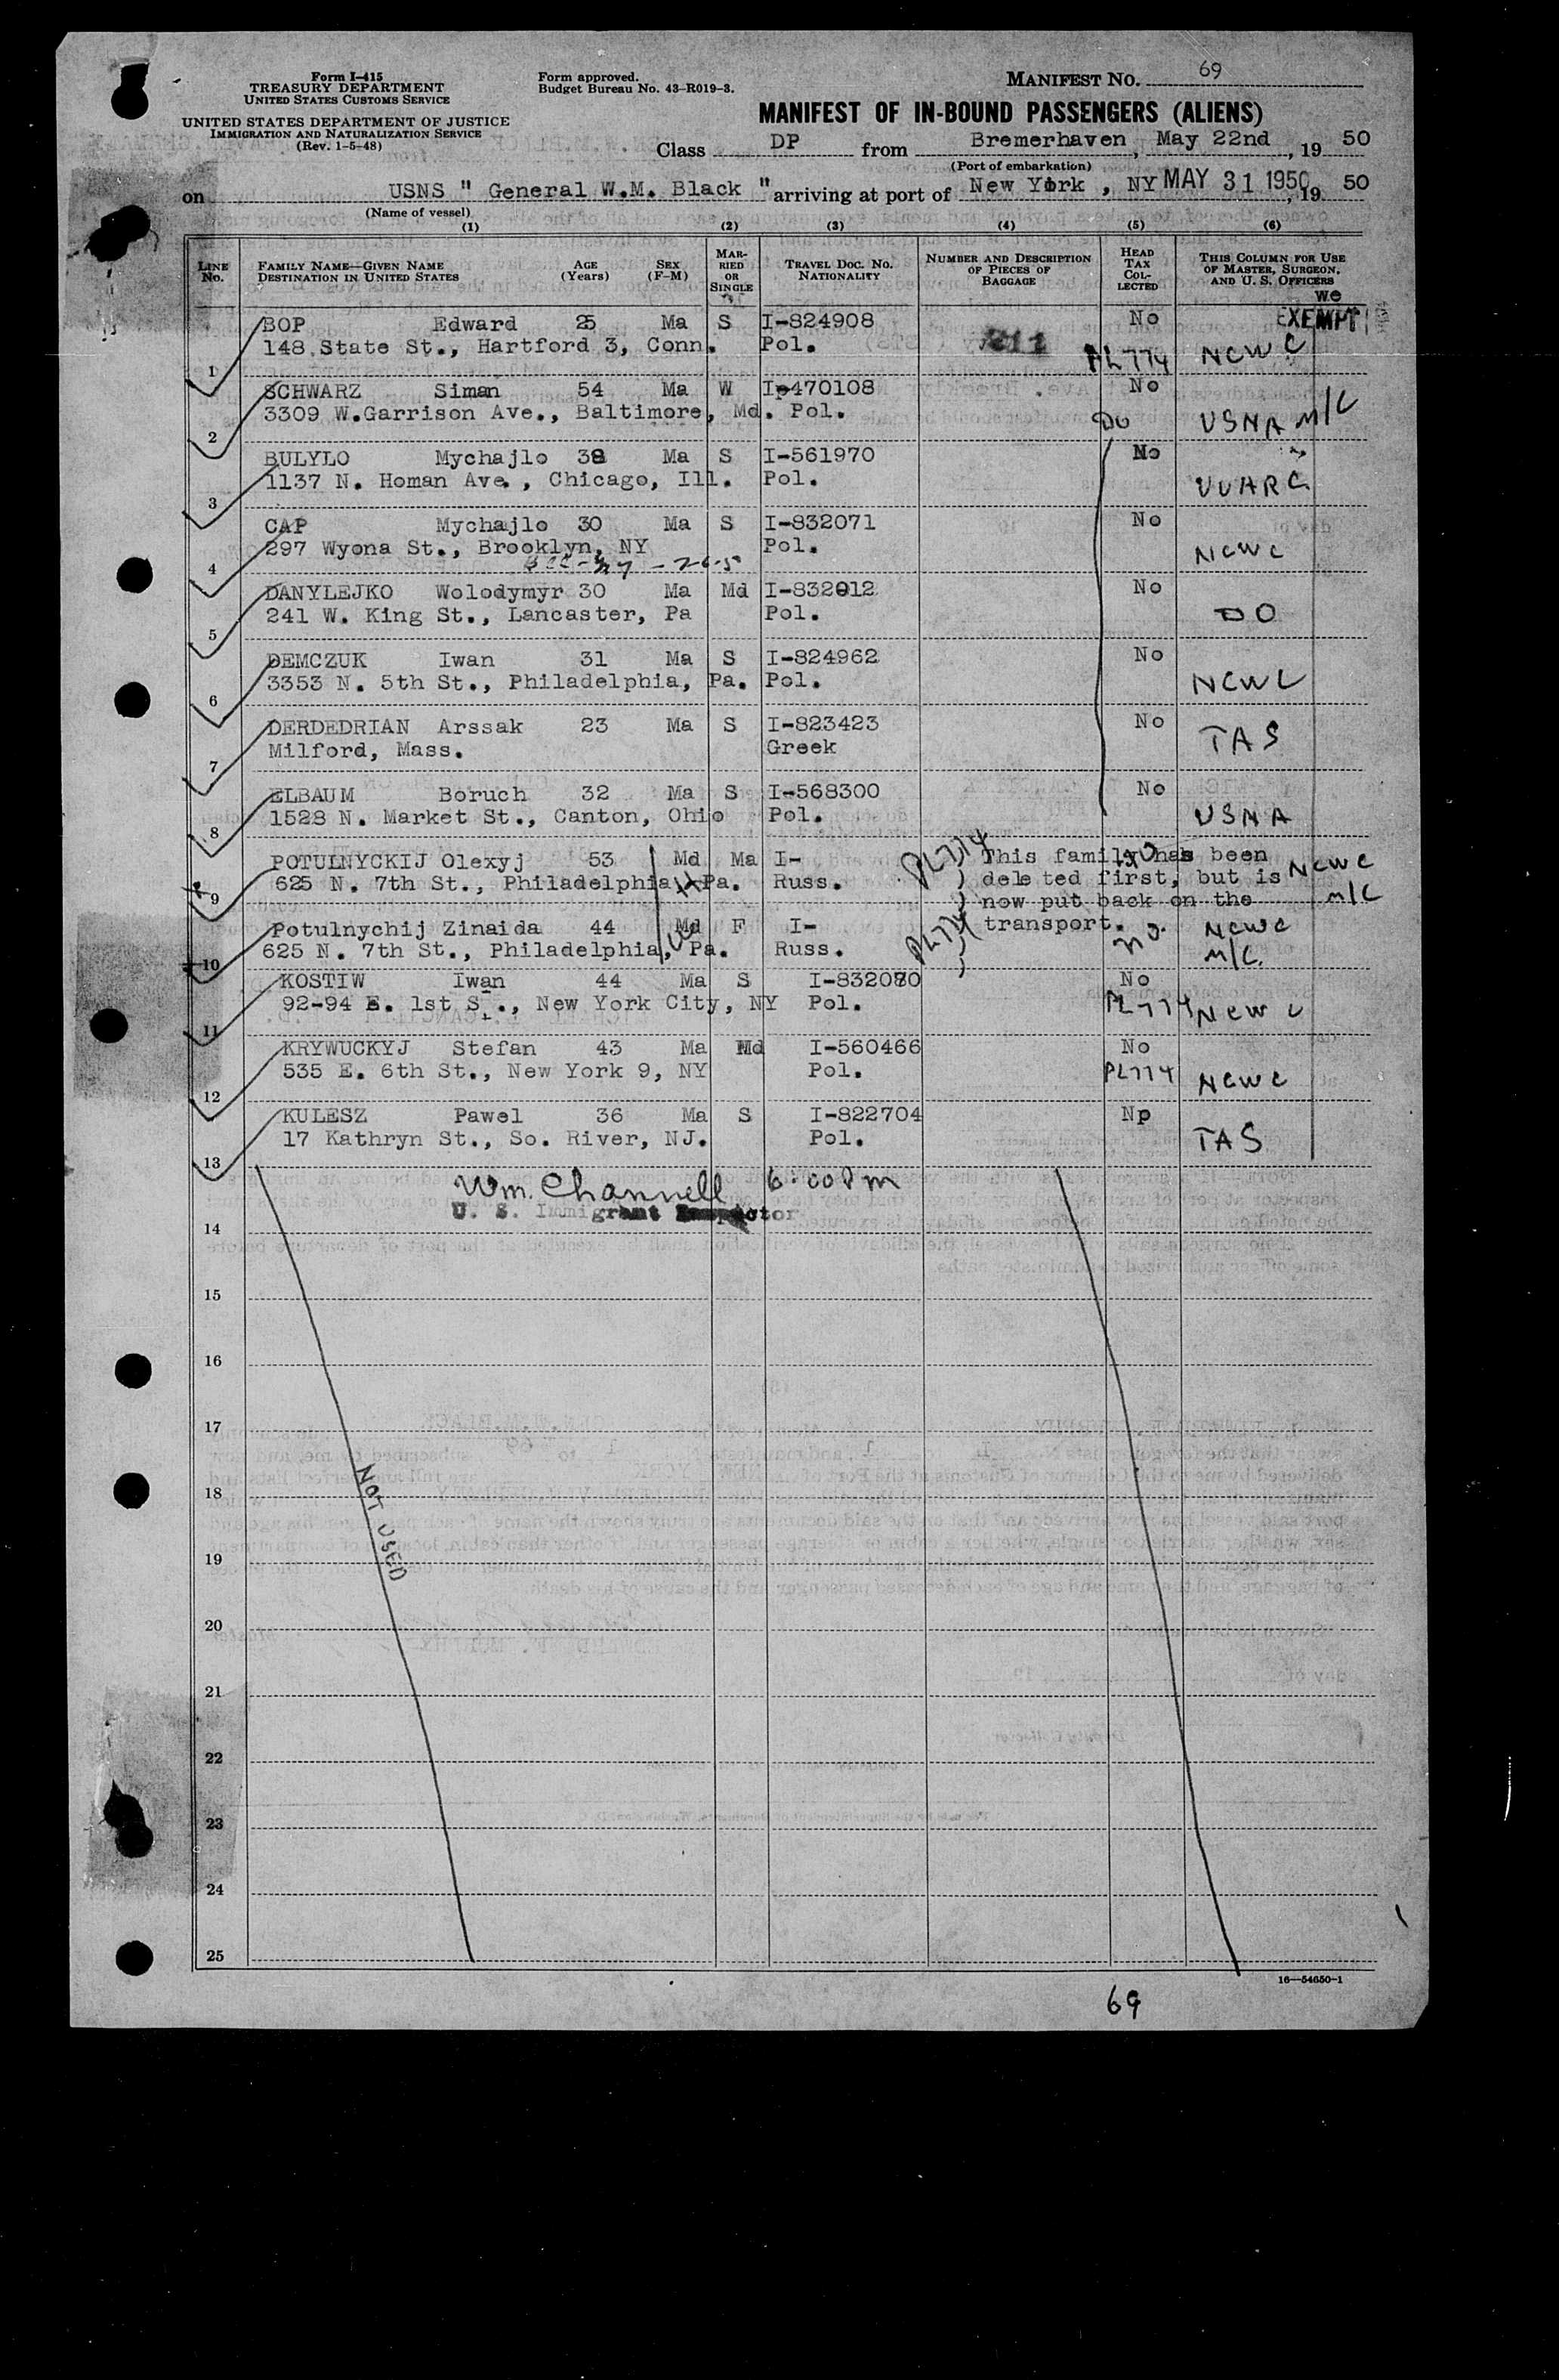 Form I-415
TREASURY DEPARTMENT
UNITED STATES CUSTOMS SERVICE
UNITED STATES DEPARTMENT OF JUSTICE
IMMIGRATION AND NATURALIZATION SERVICE
(Rev. 1-5-48)
Form approved.
Budget Bureau No. 43-R019-3.
MANIFEST NO. 69
MANIFEST OF IN-BOUND PASSENGERS (ALIENS)
Class DP from Bremerhaven, May 22nd, 19 50
(Port of embarkation)
on USNS " General W.M. Black " arriving at port of New York , NY MAY 31 1950, 19 50
(Name of vessel)
(1) (2) (3) (4) (5) (6)
LINE No. FAMILY NAME—GIVEN NAME DESTINATION IN UNITED STATES AGE (Years) SEX (F-M) MARRIED OR SINGLE TRAVEL DOC. NO. NATIONALITY NUMBER AND DESCRIPTION OF PIECES OF BAGGAGE HEAD TAX COLLECTED THIS COLUMN FOR USE OF MASTER, SURGEON, AND U. S. OFFICERS
we
BOP Edward 25 Ma S I-824908 No EXEMPT
1 148 State St., Hartford 3, Conn. Pol. PL774 NCWC
SCHWARZ Siman 54 Ma W I-470108 No
2 3309 W.Garrison Ave., Baltimore, Md. Pol. Do USNA M/C
BULYLO Mychajlo 38 Ma S I-561970 No
3 1137 N. Homan Ave., Chicago, Ill. Pol. UUARC
CAP Mychajlo 30 Ma S I-832071 No
4 297 Wyona St., Brooklyn, NY Pol. NCWC
DANYLEJKO Wolodymyr 30 Ma Md I-832012 No
5 241 W. King St., Lancaster, Pa Pol. DO
DEMCZUK Iwan 31 Ma S I-824962 No
6 3353 N. 5th St., Philadelphia, Pa. Pol. NCWC
DERDEDRIAN Arssak 23 Ma S I-823423 No
7 Milford, Mass. Greek TAS
ELBAUM Boruch 32 Ma S I-568300 No
8 1528 N. Market St., Canton, Ohio Pol. USNA
POTULNYCKIJ Olexyj 53 Md Ma I- PL774 This family has been NCWC
9 625 N. 7th St., Philadelphia, Pa. Russ. deleted first, but is M/C
now put back on the
Potulnychij Zinaida 44 Md F I- PL774 transport. no NCWC
10 625 N. 7th St., Philadelphia, Pa. Russ. M/C
KOSTIW Iwan 44 Ma S I-832070 No
11 92-94 E. 1st St., New York City, NY Pol. PL774 NCWC
KRYWUCKYJ Stefan 43 Ma Md I-560466 No
12 535 E. 6th St., New York 9, NY Pol. PL774 NCWC
KULESZ Pawel 36 Ma S I-822704 Np
13 17 Kathryn St., So. River, NJ. Pol. TAS
Wm. Channell 6:00 Pm
U. S. Immigrant Inspector
14
15
16
17
18
NOT USED
19
20
21
22
23
24
25
16—54650-1
69